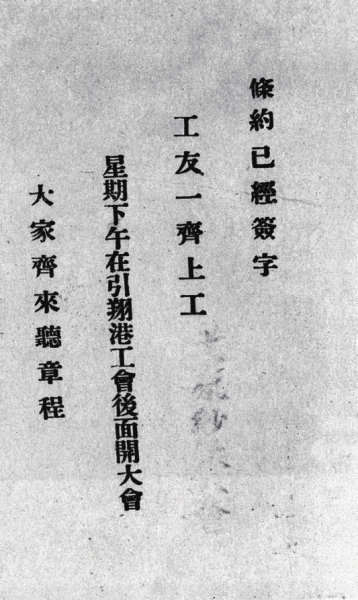 條約已經簽字
工友一齊上工
星期下午在引翔港工會後面開大會
大家齊來聽章程